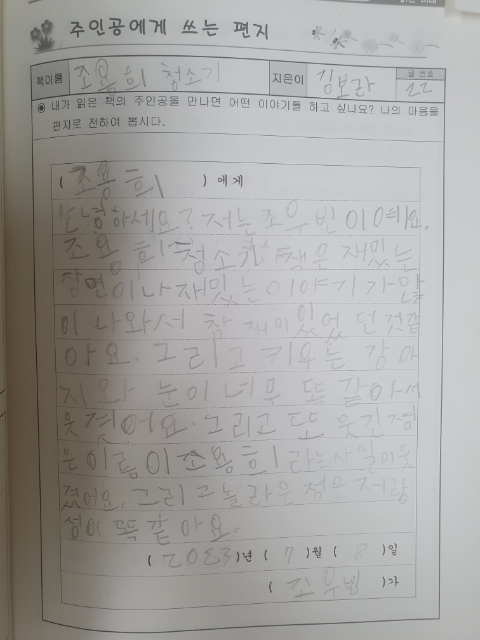 주인공에게 쓰는 편지
책이름 조용희 청소기 지은이 김보라 글 번호 22
◉ 내가 읽은 책의 주인공을 만나면 어떤 이야기를 하고 싶나요? 나의 마음을
편지로 전하여 봅시다.
( 조용희 ) 에게
안녕하세요? 저는 조우빈이에요.
조용희 청소기 책은 재밌는
장면이나 재밌는 이야기가 많
이 나와서 참 재미있었던 것같
아요. 그리고 키우는 강아
지와 눈이 너무 똑같아서
웃겼어요. 그리고 또 웃긴 점
은 이름이 조용희라는 사실이 웃
겼어요. 그리고 놀라운 점은 저랑
성이 똑같아요.
(2023)년 (7)월 (8)일
( 조우빈 )가